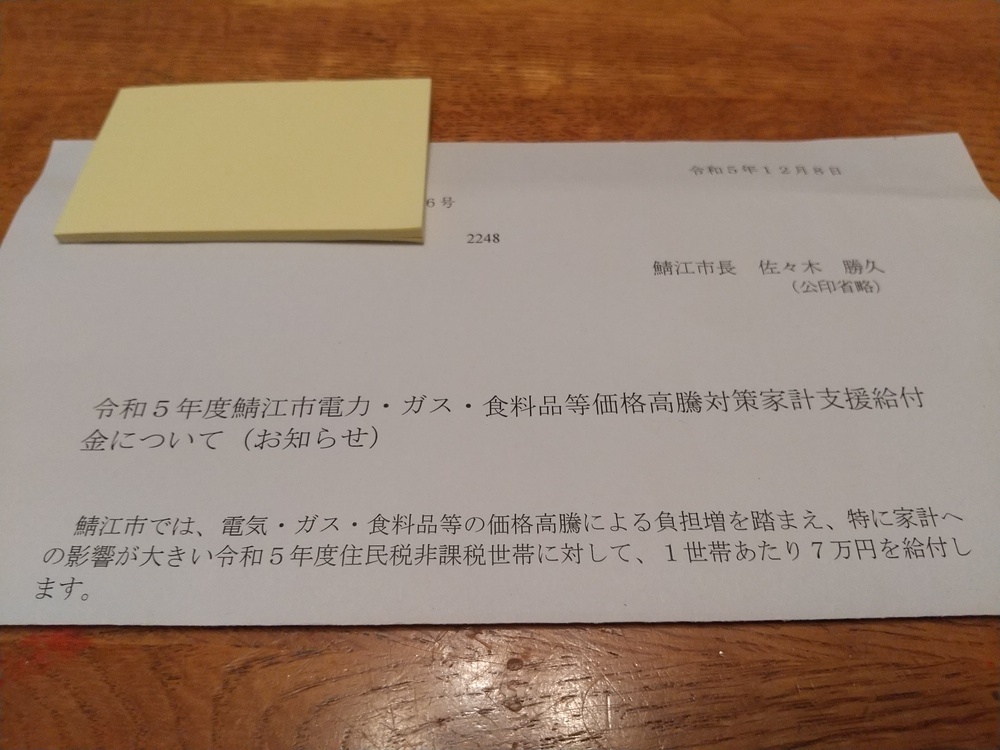 令和5年12月8日
6号
2248
鯖江市長 佐々木 勝久
(公印省略)
令和5年度鯖江市電力・ガス・食料品等価格高騰対策家計支援給付
金について(お知らせ)
鯖江市では、電気・ガス・食料品等の価格高騰による負担増を踏まえ、特に家計へ
の影響が大きい令和5年度住民税非課税世帯に対して、1世帯あたり7万円を給付し
ます。